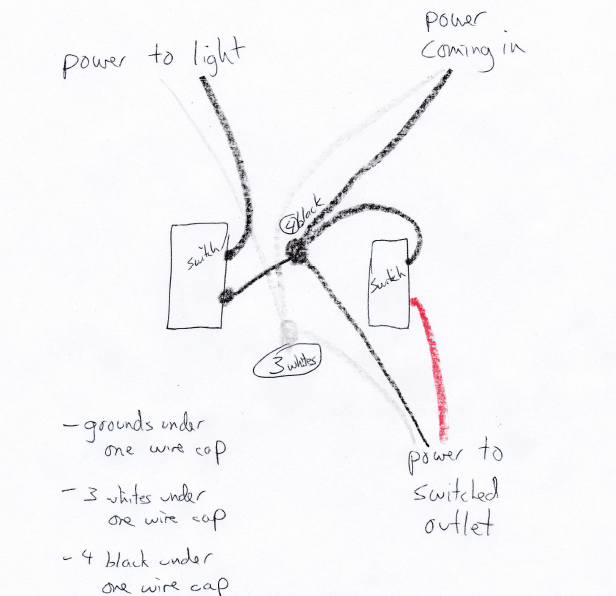 power to light
power
coming in
4 black
switch
switch
3 whites
- grounds under
one wire cap
- 3 whites under
one wire cap
- 4 black under
one wire cap
power to
switched
outlet